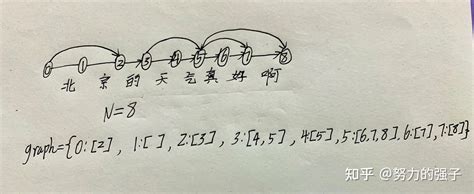 0 1 2 3 4 5 6 7 8
北 京 的 天 气 真 好 啊
N=8
graph={0:[2], 1:[ ], 2:[3], 3:[4,5], 4[5], 5:[6,7,8], 6:[7], 7:[8]}
知乎 @努力的强子